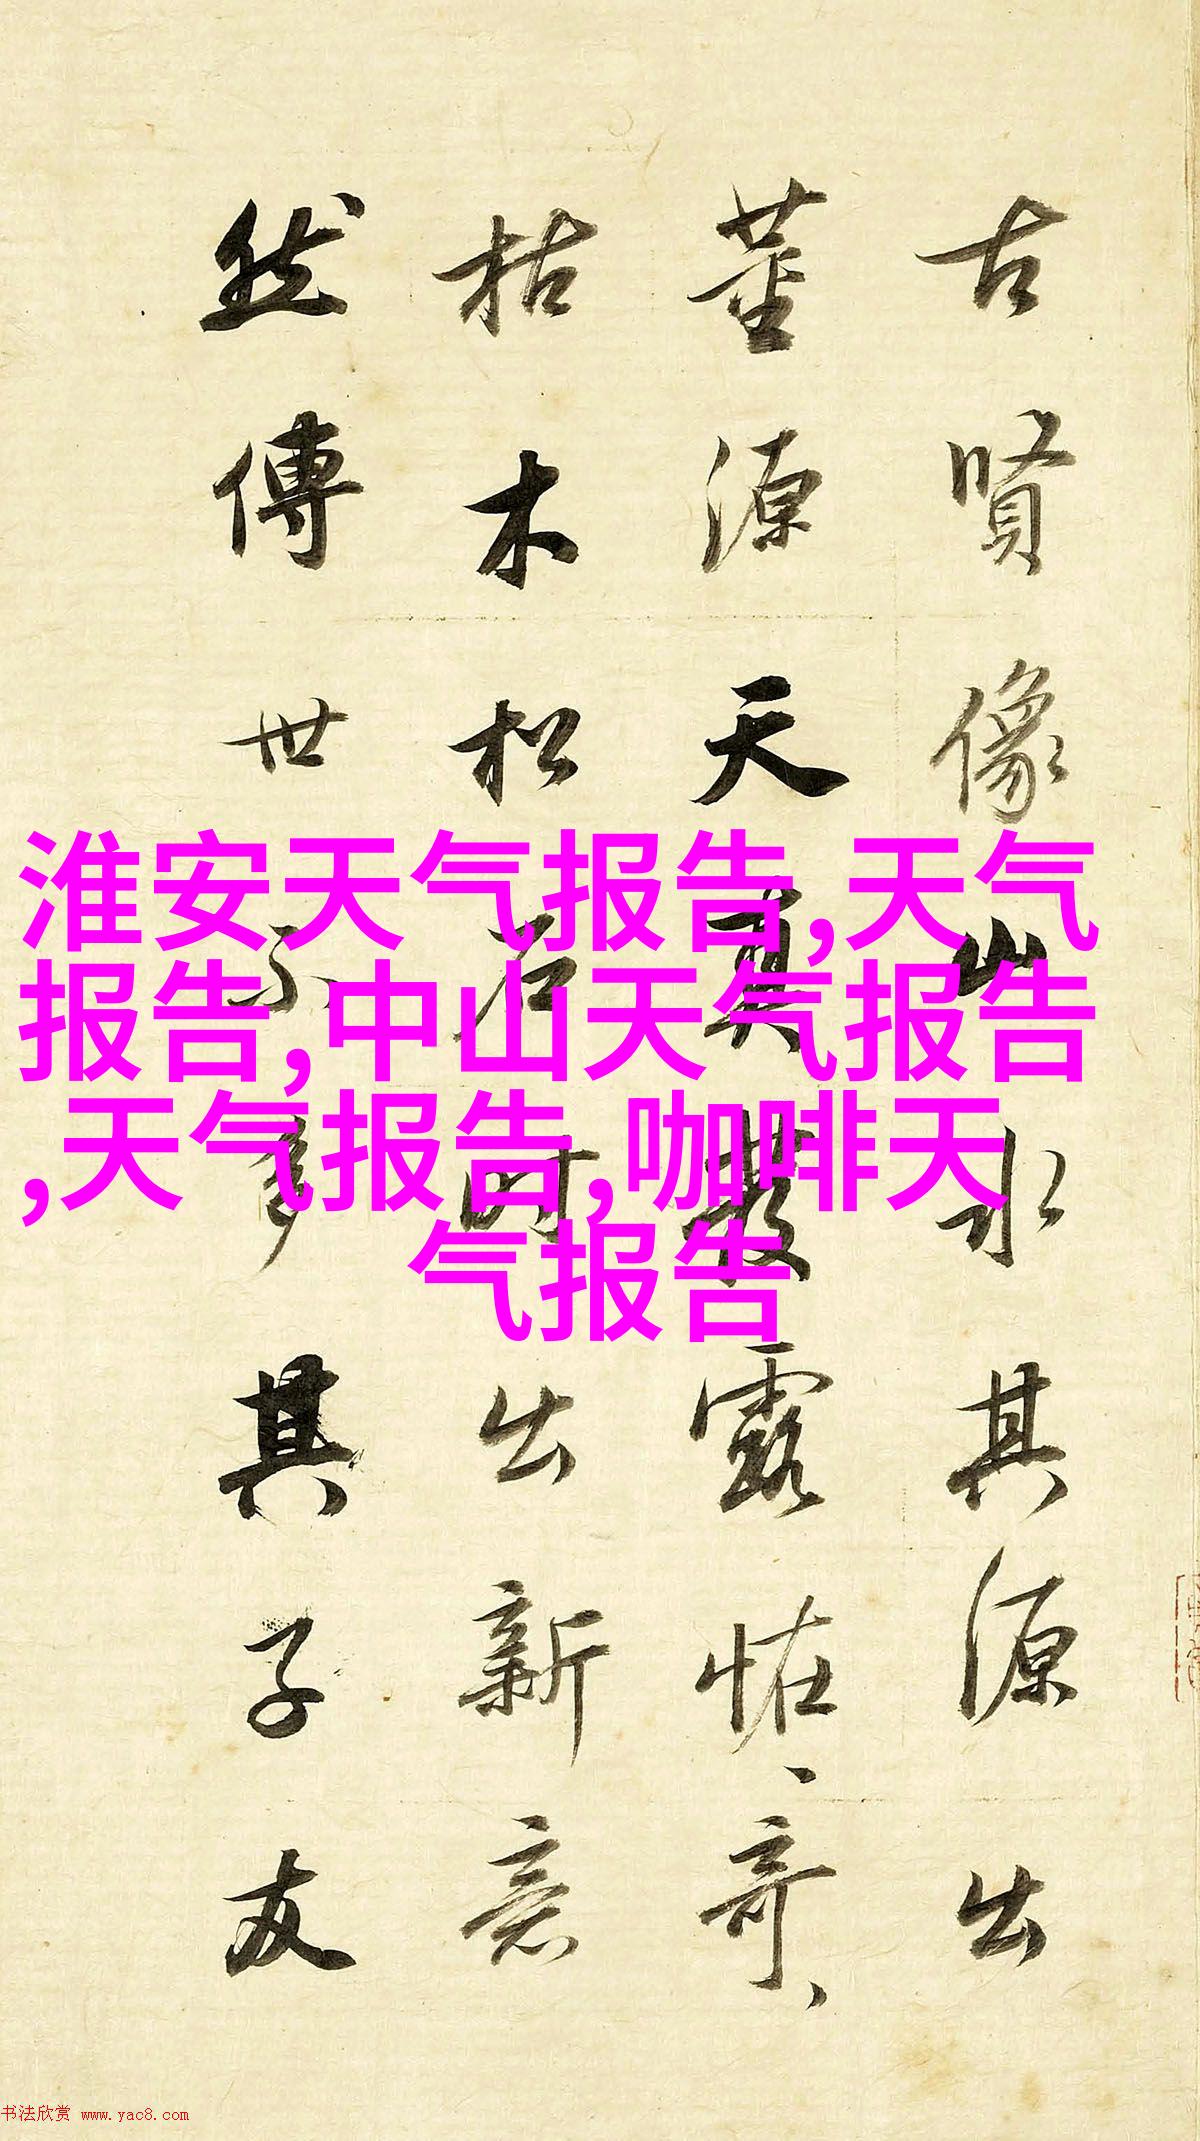 古贤像山水其源出
董源天真發露恠奇
枯木松石時出新意
然傳世不多其子友
淮安天气报告,天气
报告,中山天气报告
,天气报告,咖啡天
气报告
书法欣赏 www.yac8.com